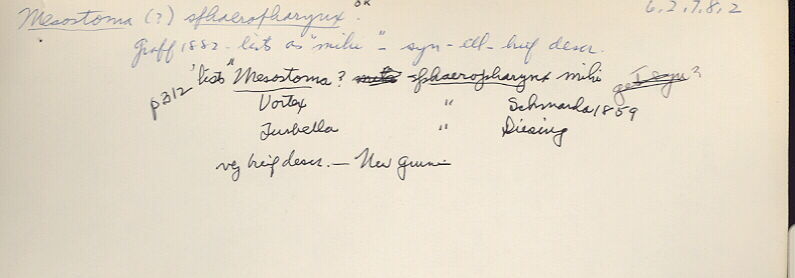 Mesostoma (?) sphaeropharynx. OK 6,2,7,8,2
Graff 1882 - lists as "mihi" - syn - ill - brief descr.
p312 'lists "Mesostoma ? sphaeropharynx mihi
Vortex " Schmarda 1859
Turbella " Diesing
very brief descr. — New